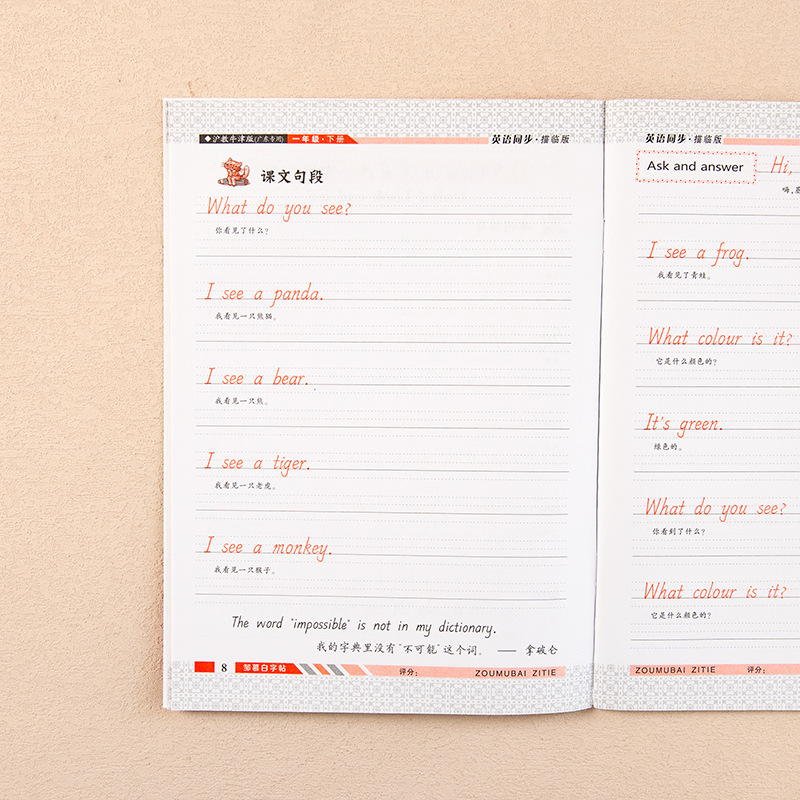 ◆沪教牛津版(广东专用) 一年级·下册 英语同步·描临版
课文句段
What do you see?
你看见了什么?
I see a panda.
我看见一只熊猫。
I see a bear.
我看见一只熊。
I see a tiger.
我看见一只老虎。
I see a monkey.
我看见一只猴子。
The word "impossible" is not in my dictionary.
我的字典里没有"不可能"这个词。 —— 拿破仑
8 邹慕白字帖 评分: ZOUMUBAI ZITIE
英语同步·描临版
Ask and answer Hi,
嗨,
I see a frog.
我看见了青蛙。
What colour is it?
它是什么颜色的?
It's green.
绿色的。
What do you see?
你看到了什么?
What colour is it?
它是什么颜色的?
ZOUMUBAI ZITIE 评分: